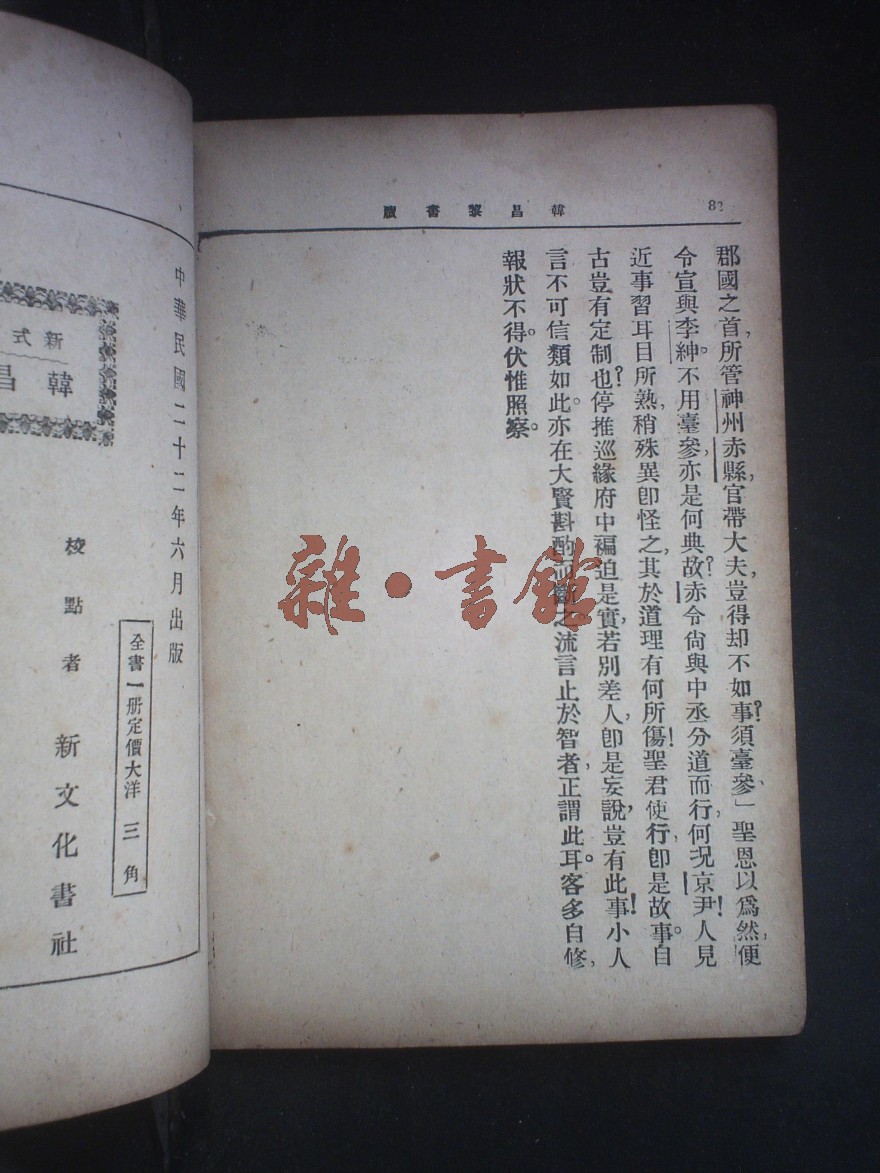 韓昌黎書牘
郡國之首,所管神州赤縣,官帶大夫,豈得却不如事?須臺參」聖恩以爲然,便
令宣與李紳。不用臺參,亦是何典故?赤令尙與中丞分道而行,何況京尹!人見
近事習耳目所熟,稍殊異卽怪之,其於道理有何所傷!聖君使行,卽是故事。自
古豈有定制也?停推巡緣府中褊迫是實,若別差人,卽是妄說,豈有此事!小人
言不可信類如此。亦在大賢斟酌而斷之。流言止於智者,正謂此耳。客多自修,
報狀不得。伏惟照察。
中華民國二十二年六月出版
新式
韓昌
校點者 新文化書社
全書一册定價大洋三角
雜·書館